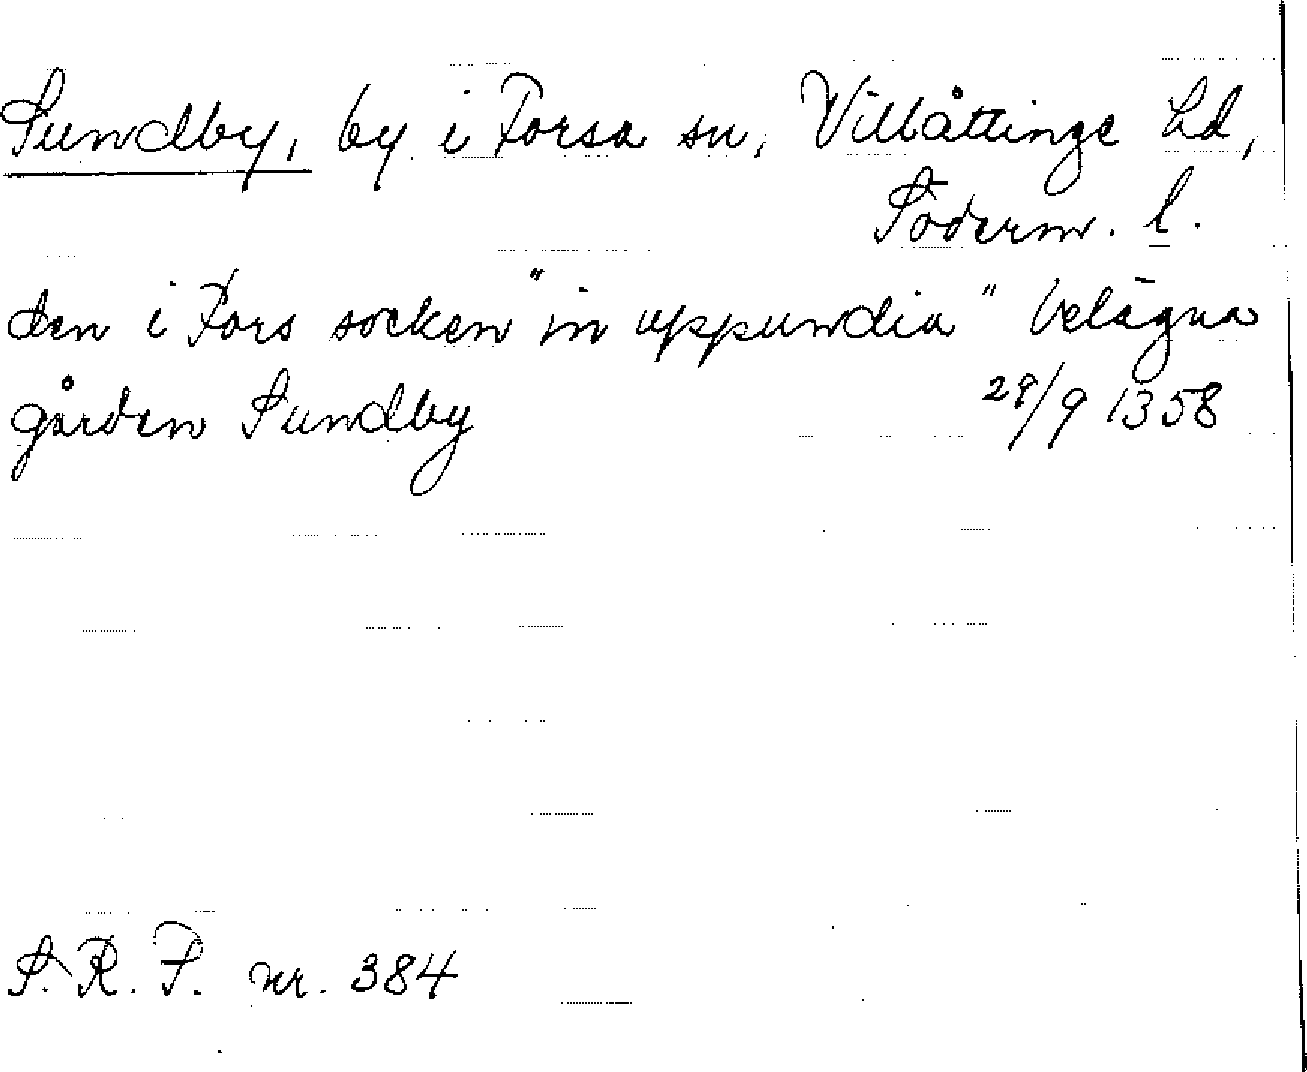 Sundby, by i Forsa sn, Villåttinge hd,
Söderm. l.
den i Fors socken "in uppundia" belägna
gården Sundby 29/9 1358
S. R. P. nr. 384